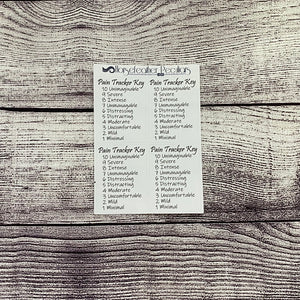 Horsefeather Peculiars
Pain Tracker Key
10 Unimaginable
9 Severe
8 Intense
7 Unmanagable
6 Distressing
5 Distracting
4 Moderate
3 Uncomfortable
2 Mild
1 Minimal
Pain Tracker Key
10 Unimaginable
9 Severe
8 Intense
7 Unmanagable
6 Distressing
5 Distracting
4 Moderate
3 Uncomfortable
2 Mild
1 Minimal
Pain Tracker Key
10 Unimaginable
9 Severe
8 Intense
7 Unmanagable
6 Distressing
5 Distracting
4 Moderate
3 Uncomfortable
2 Mild
1 Minimal
Pain Tracker Key
10 Unimaginable
9 Severe
8 Intense
7 Unmanagable
6 Distressing
5 Distracting
4 Moderate
3 Uncomfortable
2 Mild
1 Minimal